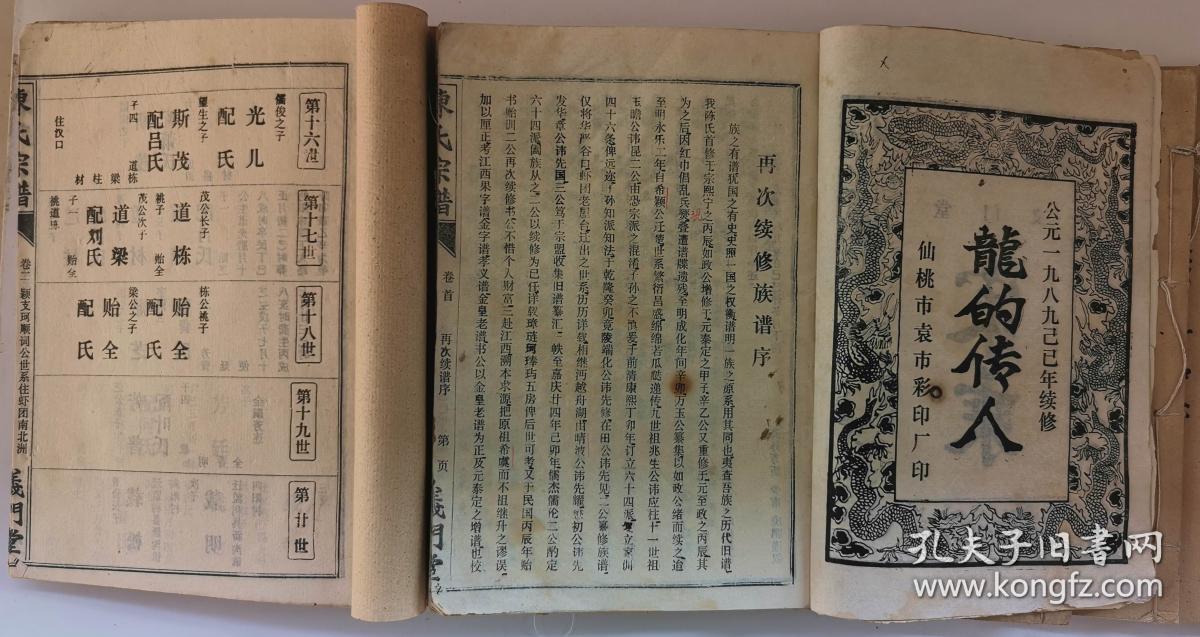 公元一九八九己巳年续修
龍的传人
仙桃市袁市彩印厂印
再次续修族谱序
族之有谱犹国之有史史照一国之权衡谱明一族之源系用其同也夷查吾族之历代旧谱
我陈氏首修王宗熙宁之丙辰如政公增修于元泰定之甲子辛乙公又重修于元至政之丙辰其
为之后因红巾倡乱兵燹叠遭谱牒遗残至明成化年间辛卯万玉公纂集以如政公绪而续之迨
至明永乐二年自希颖公迁楚世系繁衍昌盛绵绵若瓜瓞递传九世祖兆生公讳应柱十一世祖
玉瞻公讳昆二公由恐宗派之混淆子孙之不慎爰于前清康熙丁卯年订立六十四派复立家训
四十六条俾远迩子孙知派知法于乾隆癸卯竟陵端化公讳先修在田公讳先见二公纂修族谱
发华章公讳先国三公笃于宗明收集旧谱纂汇一帙至嘉庆廿四年己卯年儒杰儒伦二公酌定
六十四派阖族从之二公以续修为己任详载璋琏珂瑧玙五房俾后世可考又于民国丙辰年贻
书贻训二公再次续修书公不惜个人财富三赴江西溯本求源把原祖希虞而不祖继升之谬误
加以厘正考江西果字谱金字谱孝义谱金皇老谱书公以金皇老谱为正及元泰定之增谱也校
陳氏宗譜
卷首
再次续谱序
第 页
義門堂
第十六世
儒俊之子
光儿
配 氏
望生之子
斯茂
配吕氏
子四
道栋
梁
柱
材
住汉口
第十七世
茂公长子
道栋
桃子
贻全
茂公次子
道梁
配刘氏
子一
贻全
桃道栋
第十八世
栋公桃子
贻全
配 氏
梁公之子
贻全
配 氏
第十九世
第廿世
陳氏宗譜
卷二
颖支珂顺词公世系住虾团南北洲
義門堂
孔夫子旧书网
www.kongfz.com